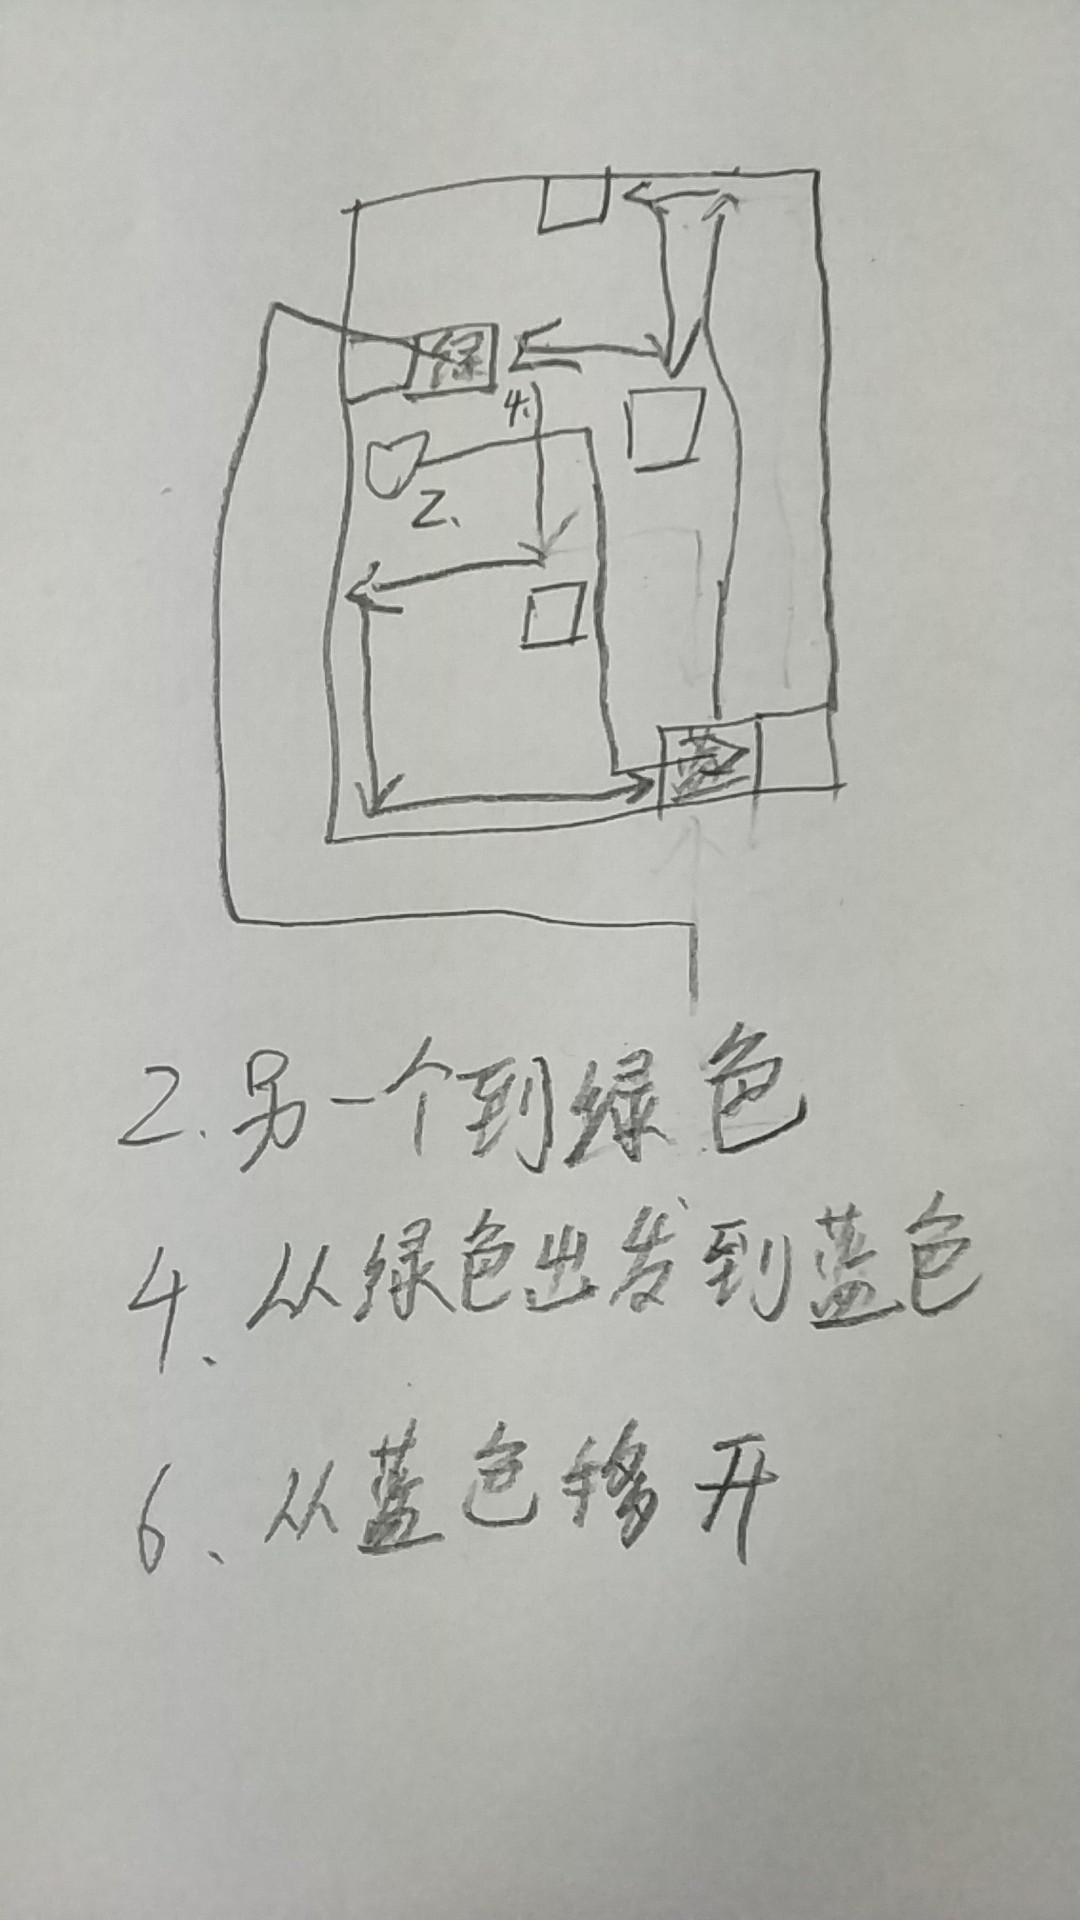 绿
4.
2、
蓝
2.另一个到绿色
4、从绿色出发到蓝色
6、从蓝色移开